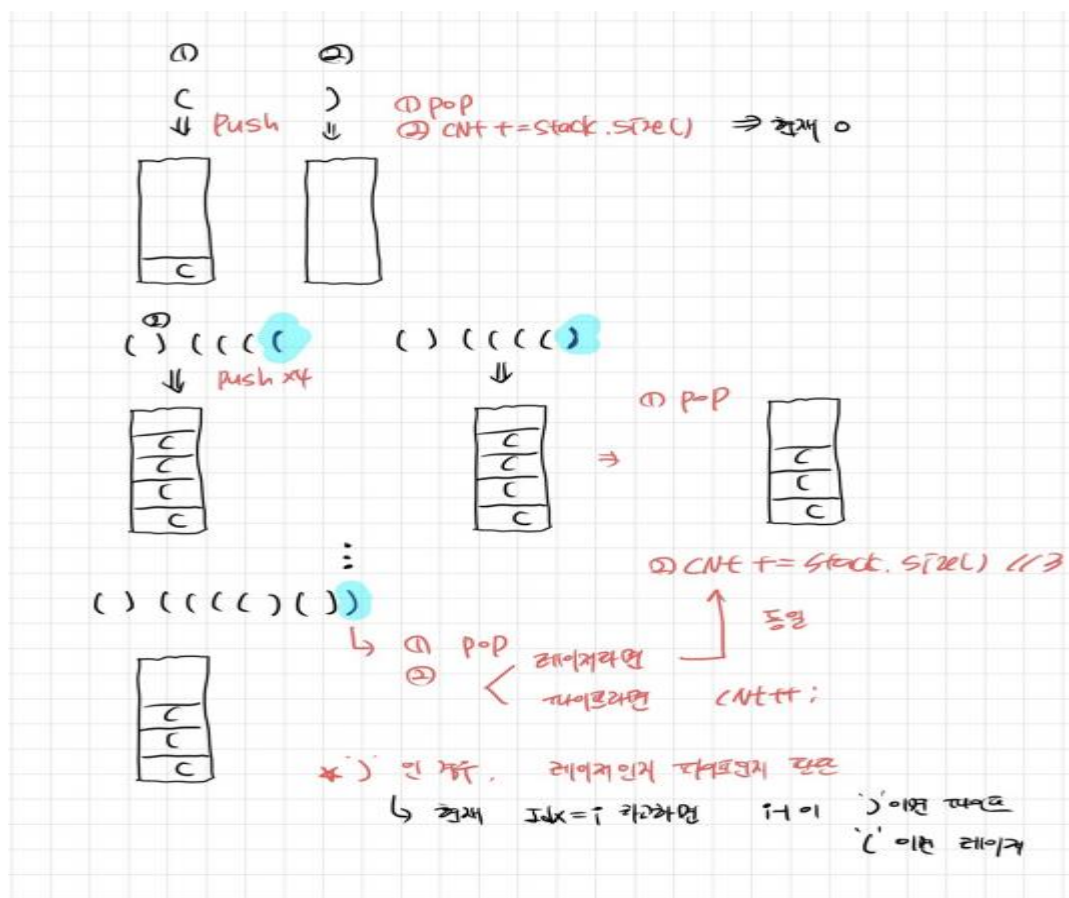 ① ②
( ) ① pop
⇓ push ⇓ ② cnt += stack.size() ⇒ 현재 0
(
②
( ) ( ( ( ( ( ) ( ( ( ( )
⇓ push x4 ⇓
① pop
( ( (
( ( ⇒ (
( ( (
( (
⋮
② cnt += stack.size() //3
( ) ( ( ( ( ) ( ) )
동일
↳ ① pop
② < 레이저라면
파이프라면 cnt++;
(
(
(
* ')' 인 경우, 레이저인지 파이프인지 판단
↳ 현재 Idx=i 라고하면 i-1이 ')'이면 파이프
'(' 이면 레이저